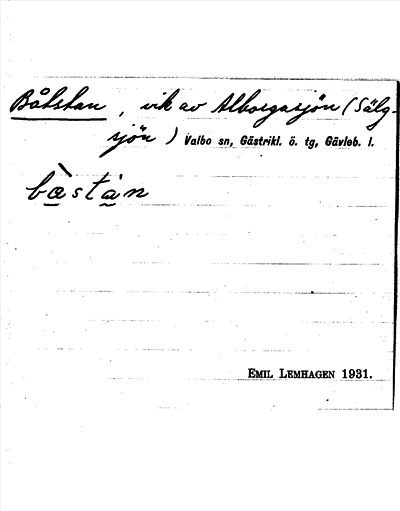 Båtstan, vik av Alborgasjön (Sälg-
sjön) Valbo sn, Gästrikl. ö. tg, Gävleb. l.
bàstàn
EMIL LEMHAGEN 1931.